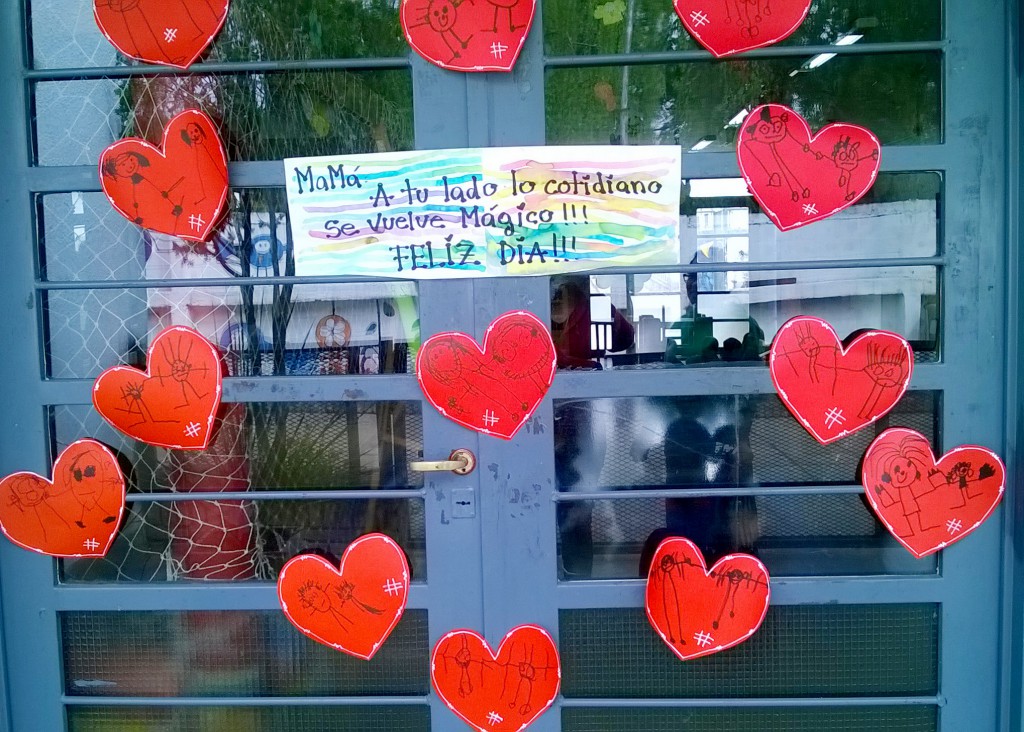 MaMá
A tu lado lo cotidiano
se vuelve Mágico!!!
FELIZ DIA!!!
#
#
#
#
#
#
#
#
#
#
#
#
#